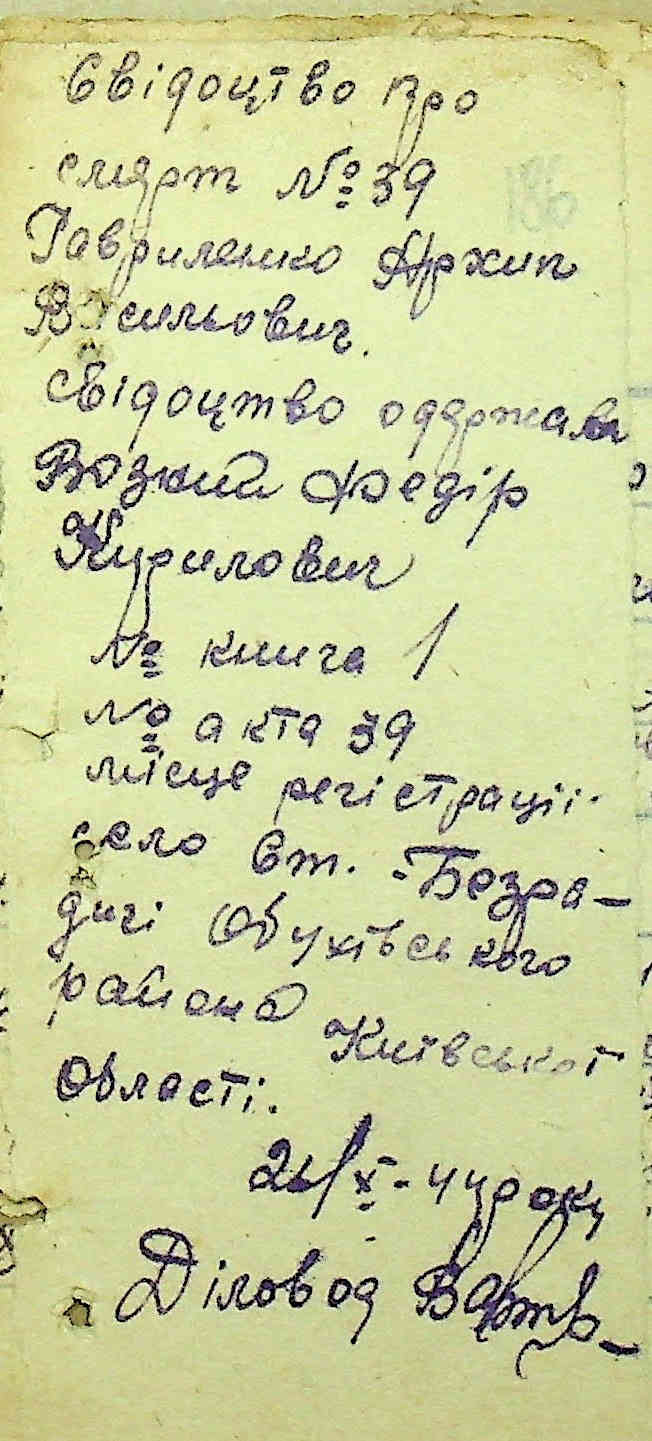 Свідоцтво про
смерт № 39
186
Гавриленко Архип
Васильович.
свідоцтво одержав
Возний Федір
Курилович
№ книга 1
№ акта 39
місце регістраціі.
село Ст. - Безра-
дичі Обухівського
района Київської
Области.
Х - 44 року
Діловод